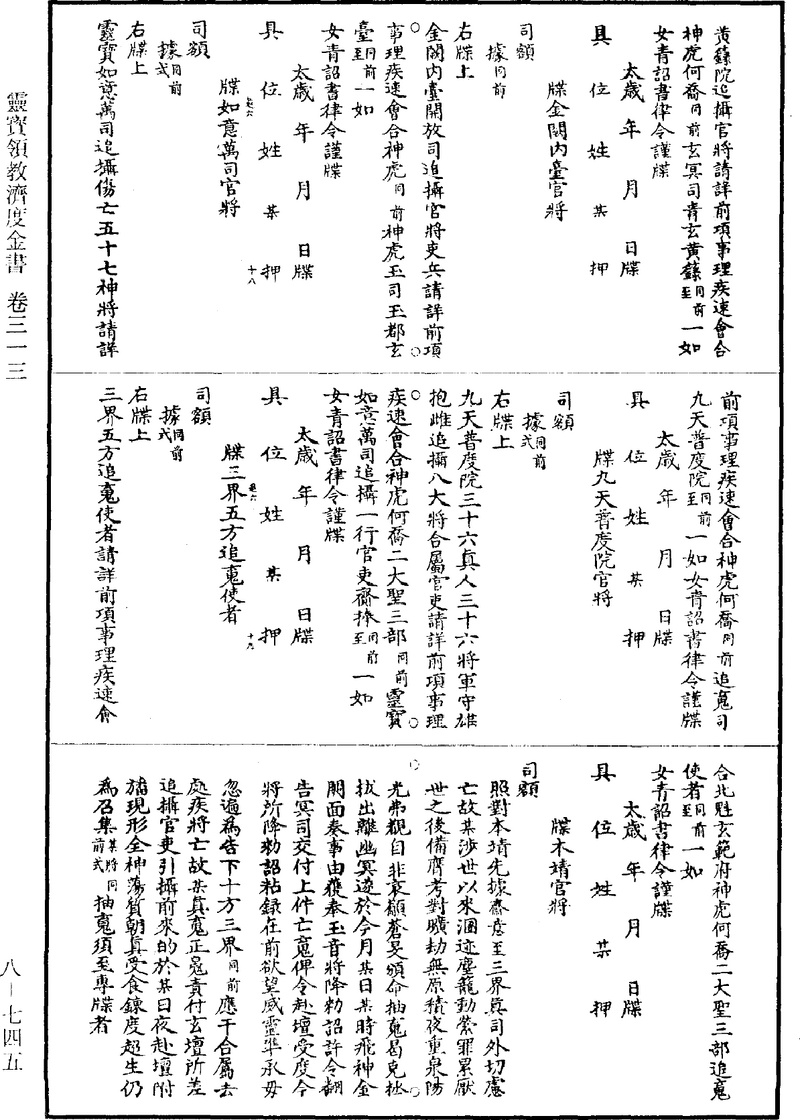 黃籙院追攝官將請詳前項事理疾速會合
神虎何喬同前玄冥司青玄黃籙同前至一如
女青詔書律令謹牒
太歲年月日牒
具位姓某押
牒金闕內臺官將
司額
據同前
右牒上
金闕內臺開放司追攝官將吏兵請詳前項
事理疾速會合神虎同前神虎玉司玉都玄
臺同前至一如
女青詔書律令謹牒
太歲年月日牒
具位姓某押
牒如意萬司官將
十八
司額
據同前式
右牒上
靈寶如意萬司追攝傷亡五十七神將請詳
前項事理疾速會合神虎何喬同前追䰟司
九天普度院同前至一如女青詔書律令謹牒
太歲年月日牒
具位姓某押
牒九天普度院官將
司額
據同前式
右牒上
九天普度院三十六真人三十六將軍守雄
抱雌追攝八大將合屬官吏請詳前項事理
疾速會合神虎何喬二大聖三部同前靈寶
如意萬司追攝一行官吏齋捧同前至一如
女青詔書律令謹牒
太歲年月日牒
具位姓某押
牒三界五方追䰟使者
十九
司額
據同前式
右牒上
三界五方追䰟使者請詳前項事理疾速會
合北魁玄範府神虎何喬二大聖三部追䰟
使者同前至一如
女青詔書律令謹牒
太歲年月日牒
具位姓某押
牒本靖官將
司額
照對本靖先據齋意至三界真司外切慮
亡故某涉世以來溷迹塵籠動縈罪累厭
世之後備膺考對曠劫無原積夜重泉陟
光弗覩自非哀籲蒼旻頒命抽䰟曷克拯
拔出離幽冥遂於今月某日某時飛神金
闕面奏事由獲奉玉音將降勑詔許令翻
告冥司交付上件亡䰟俾令赴壇受度今
將所降勑詔粘錄在前欲望威靈準承毋
忽遍為告下十方三界同前應干合屬去
處疾將亡故某真䰟正魄責付玄壇所差
追攝官吏引攝前來的於某日夜赴壇附
旛現形全神蕩質朝真受食鍊度超生仍
為召集某將同前式抽䰟須至專牒者
靈寶領教濟度金書 卷三一三
八-七四五